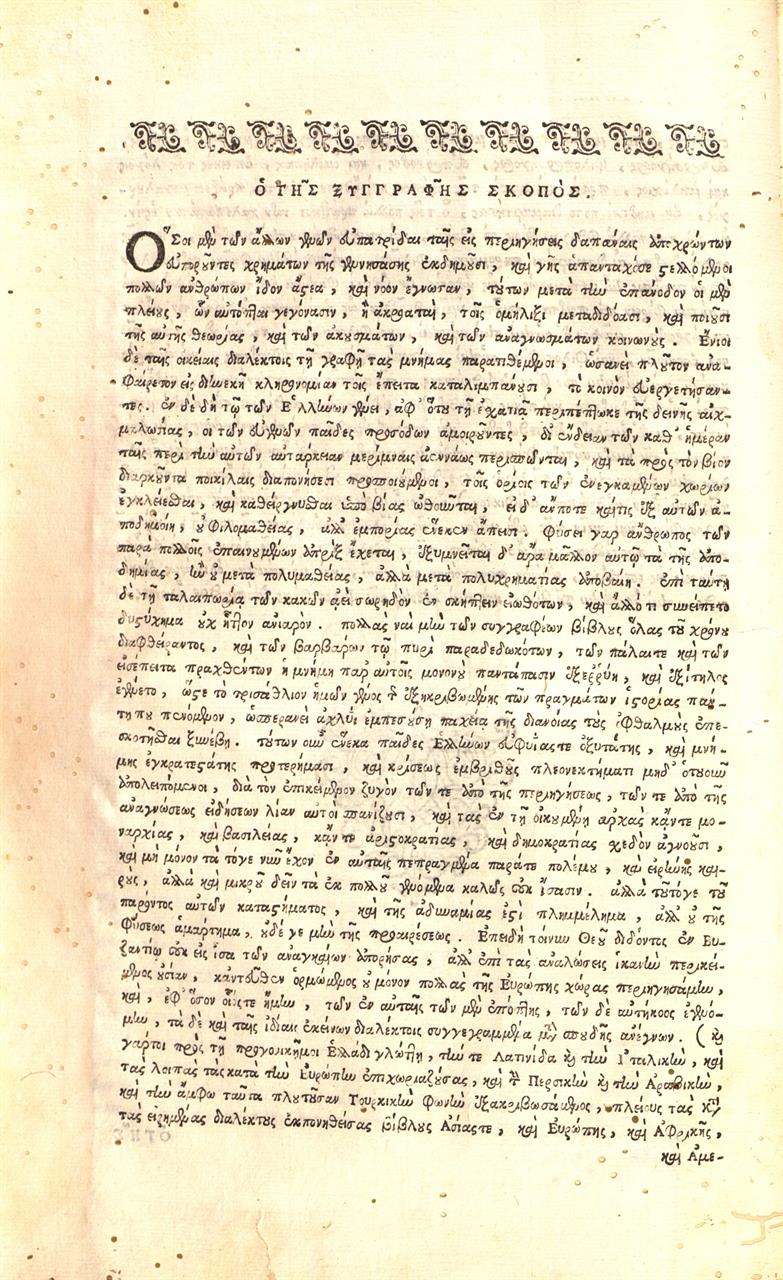 Ὁ ΤΗ͂Σ ΞΥΓΓΡΑΦΗ͂Σ ΣΚΟΠΟΣ.
Ὅσοι μὲν τῶν ἄλλων γενῶν εὐπατρίδαι ταῖς εἰς περιηγήσεις δαπάναις ἀποχρώντων
εὐποροῦντες χρημάτων τῆς γεννησάσης ἐκδημοῦσι, καὶ γῆς ἁπανταχόσε στελλόμενοι
πολλῶν ἀνθρώπων ἴδον ἄστεα, καὶ νόον ἔγνωσαν, τούτων μετὰ τὴν ἐπάνοδον οἱ μὲν
πλείους, ὧν αὐτόπται γεγόνασιν, ἢ ἀκροαταὶ, τοῖς ὁμήλιξι μεταδιδόασι, καὶ ποιοῦσι
τῆς αὐτῆς θεωρίας, καὶ τῶν ἀκουσμάτων, καὶ τῶν ἀναγνωσμάτων κοινωνούς. Ἔνιοι
δὲ ταῖς οἰκείαις διαλέκτοις τῇ γραφῇ τὰς μνήμας παρατιθέμενοι, ὡσανεὶ πλοῦτον ἀνα-
φαίρετον εἰς διηνεκῆ κληρονομίαν τοῖς ἔπειτα καταλιμπάνουσι, τὸ κοινὸν εὐεργετήσαν-
τες. ἐν δὲ δὴ τῷ τῶν Ἑλλήνων γένει, ἀφ' ὅτου τῇ ἐσχατιᾷ περιπέπτωκε τῆς δεινῆς αἰχ-
μαλωσίας, οἱ τῶν εὐγενῶν παῖδες προσόδων ἀμοιροῦντες, δι' ἔνδειαν τῶν καθ' ἡμέραν
ταῖς περὶ τὴν αὐτῶν αὐτάρκειαν μερίμναις ἀεννάως περισπῶνται, καὶ τὰ πρὸς τὸν βίον
διαρκοῦντα ποικίλαις διαπονήσεσι προσποιούμενοι, τοῖς ὁρίοις τῶν ἐνεγκαμένων χωρίων
ἐγκλείεσθαι, καὶ καθείργνυσθαι ὑπὸ βίας ὠθοῦνται, εἰ δ' ἄν ποτε καί τις ἐξ αὐτῶν ἀ-
ποδημοίη, οὐ φιλομαθείας, ἀλλ' ἐμπορίας ἕνεκεν ἄπεισι. Φύσει γὰρ ἄνθρωπος τῶν
παρὰ πολλοῖς ἐπαινουμένων ἀπρὶξ ἔχεται, ἐξυμνεῖται δ' ἄρα μᾶλλον αὐτῷ τὰ τῆς ἀπο-
δημίας, ἢν οὐ μετὰ πολυμαθείας, ἀλλὰ μετὰ πολυχρηματίας ἀποβαίη. ἐπὶ ταύτῃ
δὲ τῇ ταλαιπωρίᾳ τῶν κακῶν ἀεὶ σωρηδὸν ἐν σκήπτειν εἰωθότων, καὶ ἄλλό τι συνείπετο
δυςύχημα οὐκ ἧττον ἀνιαρὸν. πολλὰς ναὶ μὴν τῶν συγγραφέων βίβλους ὅλας τοῦ χρόνου
διαφθείραντος, καὶ τῶν βαρβάρων τῷ πυρὶ παραδεδωκότων, τῶν πάλαι τε καὶ τῶν
εἰσέπειτα πραχθέντων ἡ μνήμη παρ' αὐτοῖς μονονοὺ παντάπασιν ἐξεῤῥύη, καὶ ἐξίτηλος
ἐγένετο, ὥστε τὸ τρισάθλιον ἡμῶν γένος τῆς ἐξηκριβωμένης τῶν πραγμάτων ἱστορίας πάν-
τῃ που πενόμενον, ὡσπερανεὶ ἀχλύϊ ἐμπεσούσῃ παχείᾳ τῆς διανοίας τοὺς ὀφθαλμοὺς ἐπε-
σκοτῆσθαι ξυνέβη. τούτων οὖν ἕνεκα παῖδες Ἑλλήνων εὐφυΐας τε ὀξυτάτης, καὶ μνή-
μης ἐγκρατεστάτης προτερήμασι, καὶ κρίσεως ἐμβριθοῦς πλεονεκτήματι μηδ' ὁτουοῦν
ἀπολειπόμενοι, διὰ τὸν ἐπικείμενον ζυγὸν τῶν τε ἀπὸ τῆς περιηγήσεως, τῶν τε ἀπὸ τῆς
ἀναγνώσεως εἰδήσεων λίαν αὐτοὶ σπανίζουσι, καὶ τὰς ἐν τῇ οἰκουμένῃ ἀρχὰς κἄν τε μο-
ναρχίας, καὶ βασιλείας, κἄν τε ἀριστοκρατίας, καὶ δημοκρατίας σχεδὸν ἀγνοοῦσι,
καὶ μὴ μόνον τὰ τό γε νῦν ἔχον ἐν αὐταῖς πεπραγμένα παρά τε πολέμου, καὶ εἰρήνης και-
ροὺς, ἀλλὰ καὶ μικροῦ δεῖν τὰ ἐκ πολλοῦ γενόμενα καλῶς οὐκ ἴσασιν. ἀλλὰ τοῦτό γε τοῦ
παρόντος αὐτῶν καταστήματος, καὶ τῆς ἀδυναμίας ἐστὶ πλημμέλημα, ἀλλ' οὐ τῆς
φύσεως ἁμάρτημα, οὐδέ γε μὴν τῆς προαιρέσεως. Ἐπειδὴ τοίνυν Θεοῦ διδόντος ἐν Βυ-
ζαντίῳ οὐκ εἰς ἴσα τῶν ἀναγκαίων ἀπορήσας, ἀλλ' ἐπὶ τὰς ἀναλώσεις ἱκανὴν περικεί-
μενος οὐσίαν, κἀντεῦθεν ὁρμώμενος οὐ μόνον πολλὰς τῆς Εὐρώπης χώρας περιηγησάμην,
καὶ, ἐφ' ὅσον οἷός τε ἤμην, τῶν ἐν αὐταῖς τῶν μὲν ἐπόπτης, τῶν δὲ αὐτήκοος ἐγενό-
μην, τὰ δὲ καὶ ταῖς ἰδίαις ἐκείνων διαλέκτοις συγγεγραμμένα μετὰ σπουδῆς ἀνέγνων. (καὶ
γάρ τοι πρὸς τῇ προγονικῇ μοι Ἑλλάδι γλώττῃ, τήν τε Λατινίδα καὶ τὴν Ἰταλικὴν, καὶ
τὰς λοιπὰς τὰς κατὰ τὴν Εὐρώπην ἐπιχωριαζούσας, καὶ τὴν Περσικὴν καὶ τὴν Ἀραβικὴν,
καὶ τὴν ἄμφω ταῦτα πλουτοῦσαν Τουρκικὴν φωνὴν ἐξακριβωσάμενος, πλείους τὰς κατὰ
τὰς εἰρημένας διαλέκτους ἐκπονηθείσας βίβλους Ἀσίας τε, καὶ Εὐρώπης, καὶ Ἀφρικῆς,
καὶ Ἀμε-